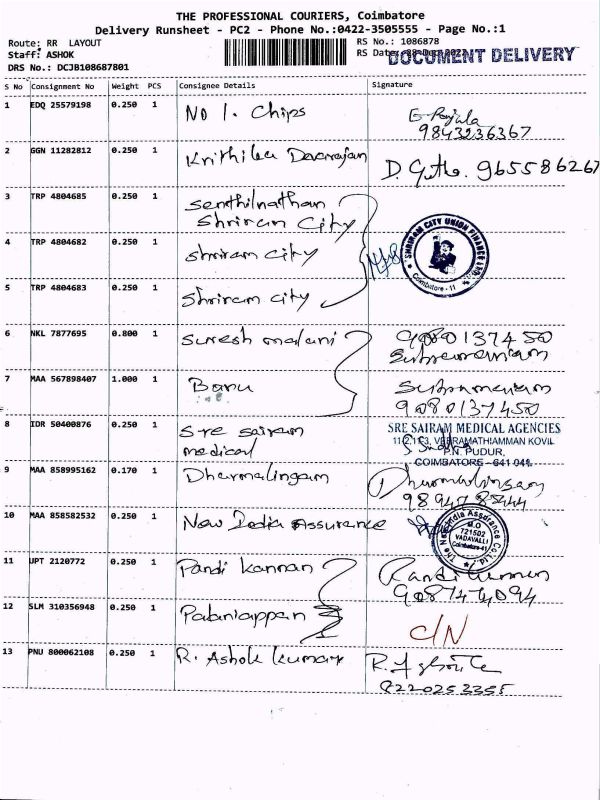 THE PROFESSIONAL COURIERS, Coimbatore
Delivery Runsheet - PC2 - Phone No.:0422-3505555 - Page No.:1
Route: RR LAYOUT
RS No.: 1086878
Staff: ASHOK
RS Date:
DOCUMENT DELIVERY
DRS No.: DCJB108687801
S No Consignment No Weight PCS Consignee Details Signature
1 EDQ 25579198 0.250 1 No 1. Chips
9843236367
2 GGN 11282812 0.250 1 Krithika Devarajan D. 965586267
3 TRP 4804685 0.250 1 Senthilnathan
Shriram City
4 TRP 4804682 0.250 1 shriram city
SHRIRAM CITY UNION FINANCE LTD.
Coimbatore - 11
5 TRP 4804683 0.250 1 Shriram city
6 NKL 7877695 0.800 1 Suresh malani 9080137450
Subramaniam
7 MAA 567898407 1.000 1 Banu Subramaniam
9080137450
8 IDR 50400876 0.250 1 Sre sairam
medical
SRE SAIRAM MEDICAL AGENCIES
VEERAMATHIAMMAN KOVIL
P.N. PUDUR,
COIMBATORE - 641 041.
9 MAA 858995162 0.170 1 Dharmalingam Dharmalingam
10 MAA 858582532 0.250 1 New India Assurance
The New India Assurance Co. Ltd.
M.O
721502
VADAVALLI
Coimbatore-41
11 UPT 2120772 0.250 1 Pandi Kannan
12 SLM 310356948 0.250 1 Palaniappan C/N
13 PNU 800062108 0.250 1 R. Ashok kumar
8220252355